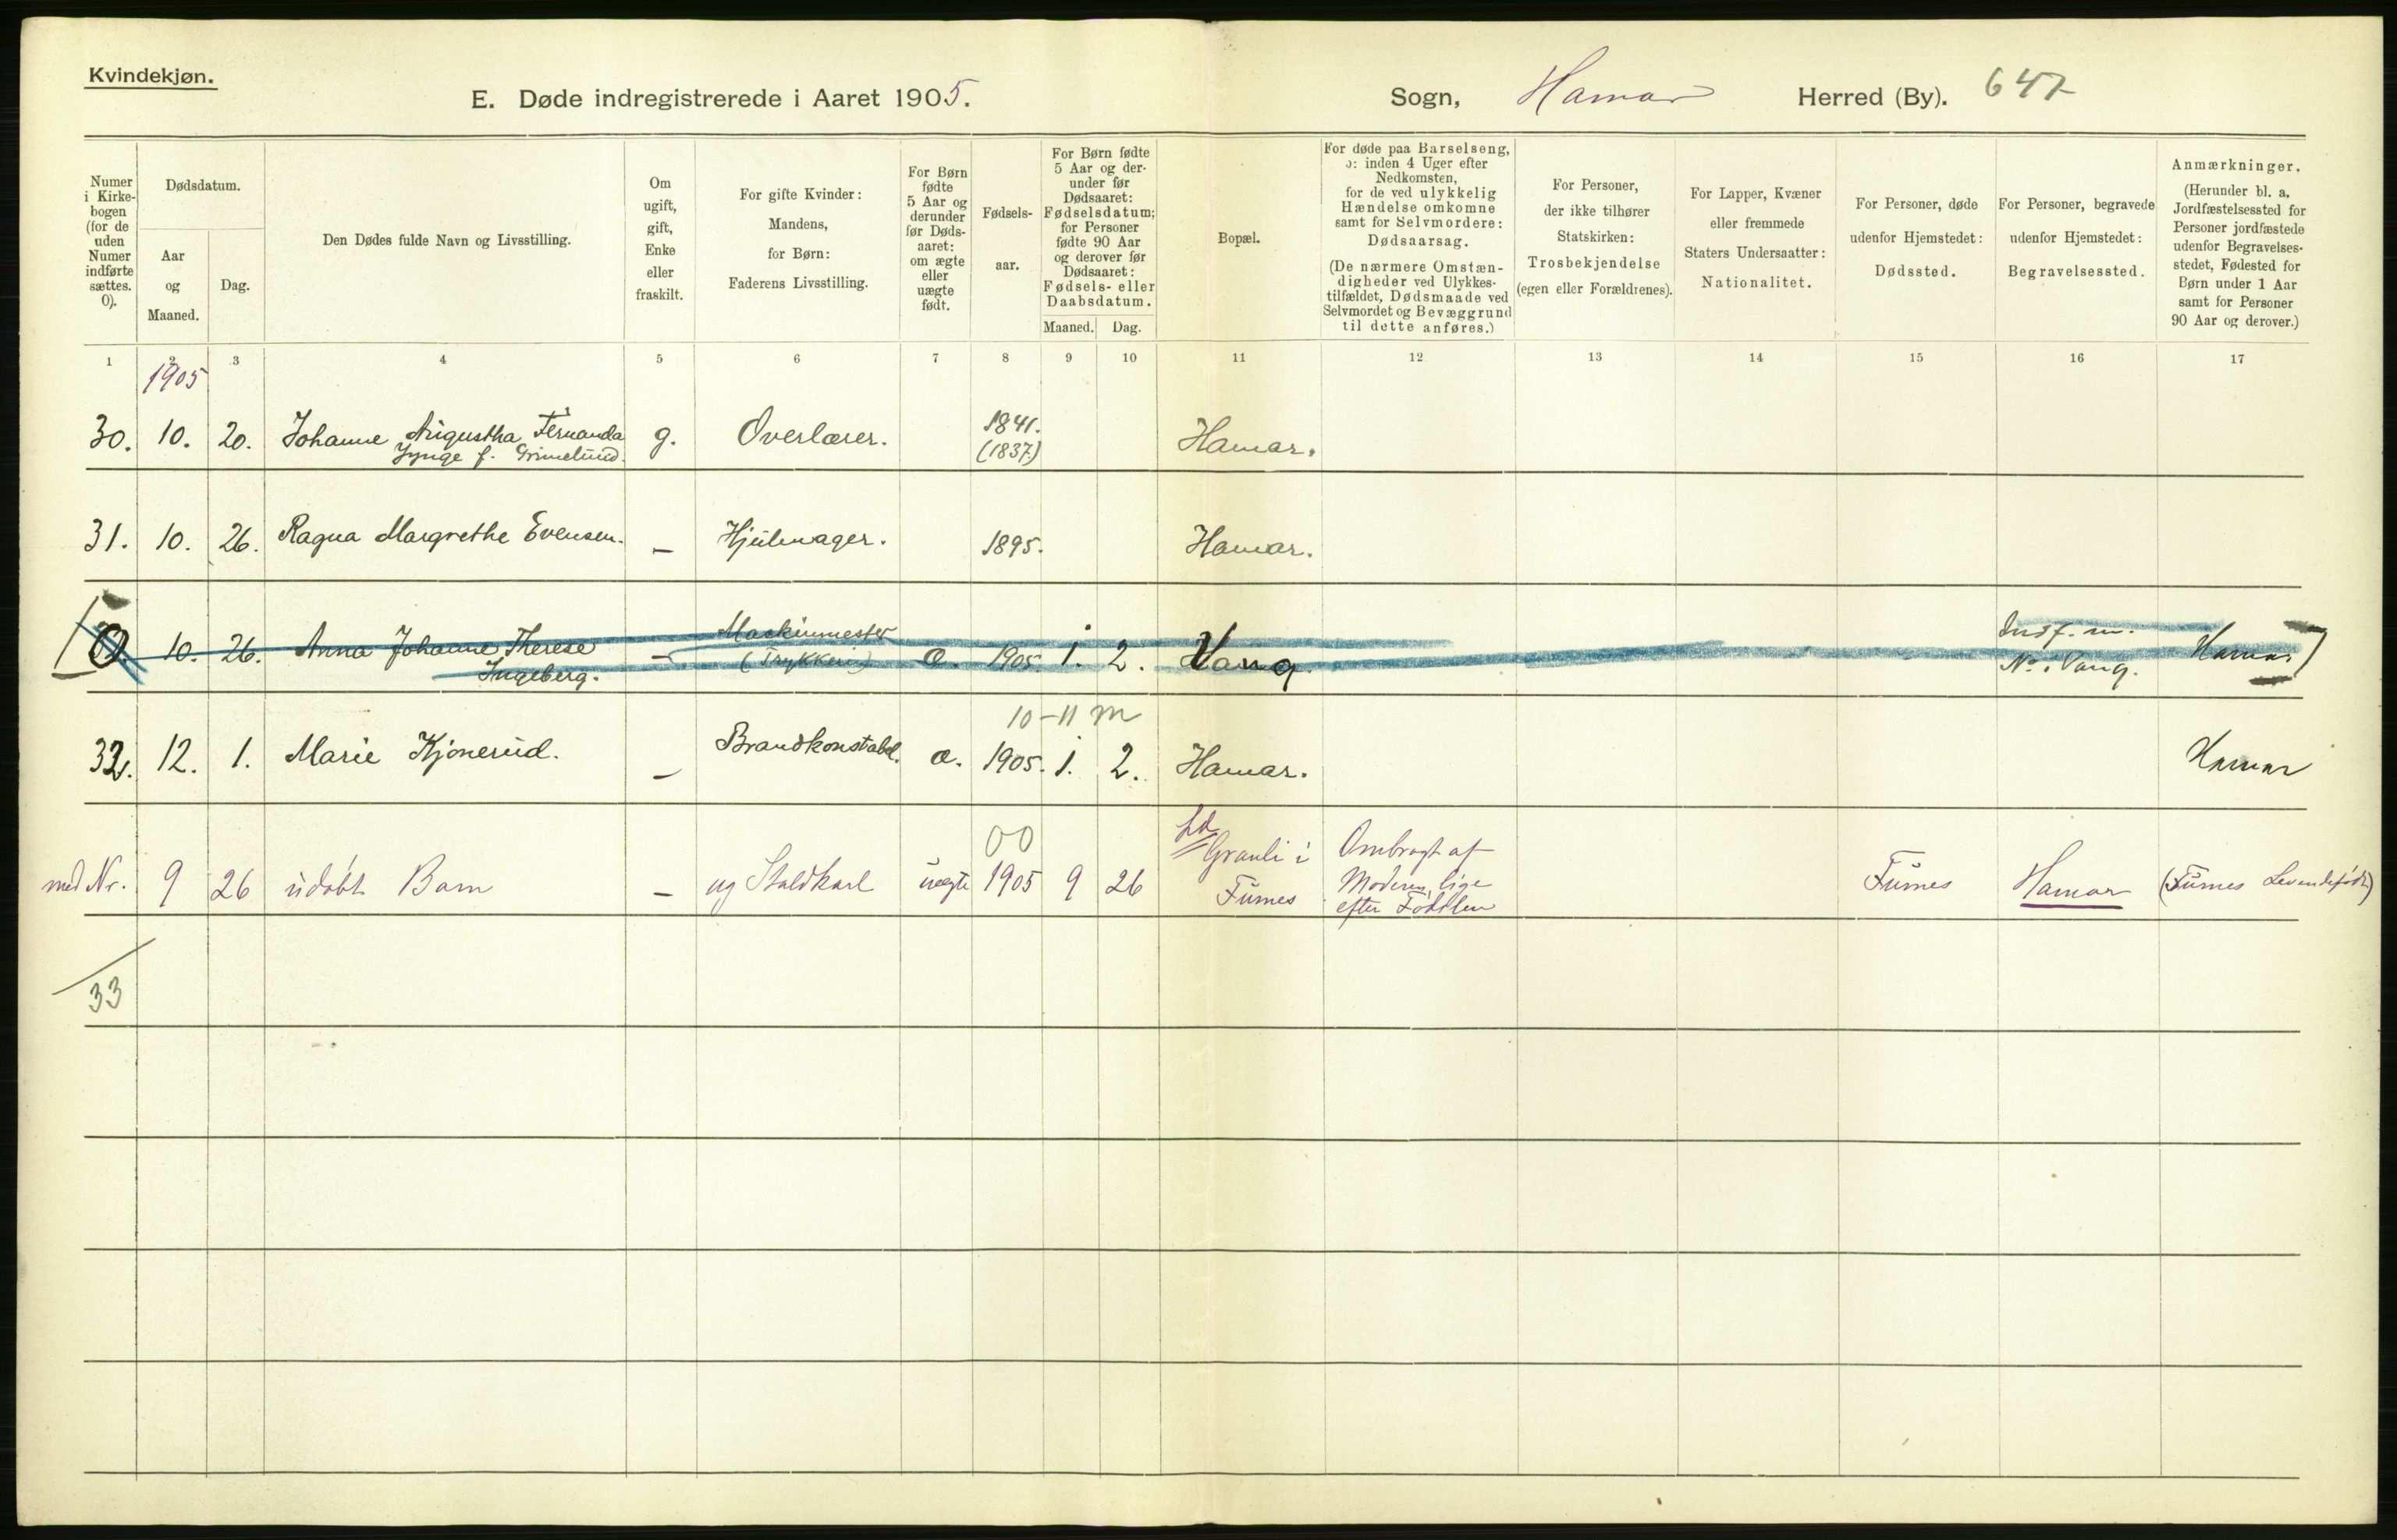 Kvindekjøn.
E. Døde indregistrerede i Aaret 1905.
Sogn, Hamar Herred (By). 647
Numer
i Kirke-
bogen
(for de
uden
Numer
indførte
sættes.
0).
Dødsdatum.
Aar
og
Maaned.
Dag.
Den Dødes fulde Navn og Livsstilling.
Om
ugift,
gift,
Enke
eller
fraskilt.
For gifte Kvinder:
Mandens,
for Børn:
Faderens Livsstilling.
For Børn
fødte
5 Aar og
derunder
før Døds-
aaret:
om ægte
eller
uægte
født.
Fødsels-
aar.
For Børn fødte
5 Aar og der-
under før
Dødsaaret:
Fødselsdatum;
for Personer
fødte 90 Aar
og derover før
Dødsaaret:
Fødsels- eller
Daabsdatum.
Maaned. Dag.
Bopæl.
For døde paa Barselseng,
ɔ: inden 4 Uger efter
Nedkomsten,
for de ved ulykkelig
Hændelse omkomne
samt for Selvmordere:
Dødsaarsag.
(De nærmere Omstæn-
digheder ved Ulykkes-
tilfældet, Dødsmaade ved
Selvmordet og Bevæggrund
til dette anføres.)
For Personer,
der ikke tilhører
Statskirken:
Trosbekjendelse
(egen eller Forældrenes).
For Lapper, Kvæner
eller fremmede
Staters Undersaatter:
Nationalitet.
For Personer, døde
udenfor Hjemstedet:
Dødssted.
For Personer, begravede
udenfor Hjemstedet:
Begravelsessted.
Anmærkninger.
(Herunder bl. a.
Jordfæstelsessted for
Personer jordfæstede
udenfor Begravelses-
stedet, Fødested for
Børn under 1 Aar
samt for Personer
90 Aar og derover.)
1 2 3 4 5 6 7 8 9 10 11 12 13 14 15 16 17
1905
30. 10. 20. Johanne Augustha Fernanda g. Overlærer. 1841. Hamar.
Jynge f. Grimelund. (1837.)
31. 10. 26. Ragna Margrethe Evensen. – Hjulmager. 1895. Hamar.
0. 10. 26. Anna Johanne Therese – Maskinmester æ. 1905. 1. 2. Vang. Indf. m. Hamar
Ingeberg. (Trykkeri) No. i Vang.
10–11 m
32. 12. 1. Marie Kjonerud. – Brandkonstabel. æ. 1905. 1. 2. Hamar. Hamar
00
med Nr. 9 26 udøbt Barn – ug Staldkarl uægte 1905 9 26 Granli i Ombragt af Furnes Hamar (Furnes Levendefødt)
Furnes Moderen lige
efter Fødslen
33